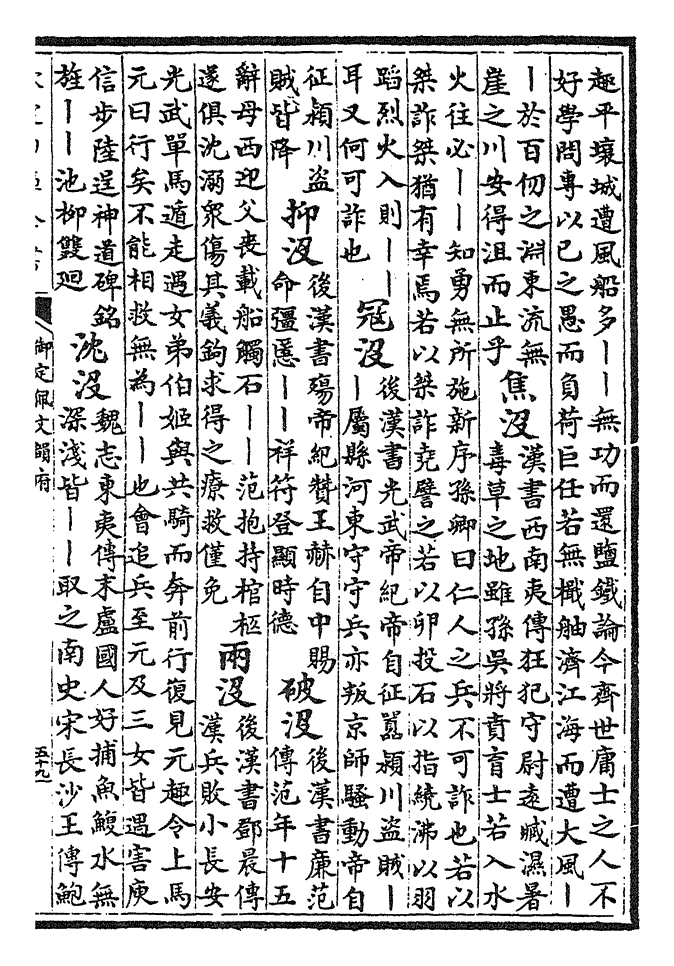 趣平壤城遭風船多丨丨無功而還鹽鐵論今齊世庸士之人不
好學問專以已之愚而負荷巨任若無檝舳濟江海而遭大風丨
丨於百仞之淵東流無
崖之川安得沮而止乎
焦沒
漢書西南夷傳狂犯守尉遠臧濕暑
毒草之地雖孫吳將賁育士若入水
火往必丨丨知勇無所施新序孫卿曰仁人之兵不可詐也若以
桀詐桀猶有幸焉若以桀詐堯譬之若以卵投石以指繞沸以羽
蹈烈火入則丨丨
耳又何可詐也
冦沒
後漢書光武帝紀帝自征嚻潁川盜賊丨
丨屬縣河東守守兵亦叛京師騷動帝自
征潁川盜
賊皆降
抑沒
後漢書殤帝紀贊王赫自中賜
命彊慝丨丨祥符登顯時德
破沒
後漢書廉范
傳范年十五
辭母西迎父喪載船觸石丨丨范抱持棺柩
遂俱沈溺眾傷其義鉤求得之療救僅免
兩沒
後漢書鄧晨傳
漢兵敗小長安
光武單馬遁走遇女弟伯姬與共騎而奔前行復見元趣令上馬
元曰行矣不能相救無為丨丨也會追兵至元及三女皆遇害庾
信步陸逞神道碑銘
旌丨丨池柳雙廻
沈沒
魏志東夷傳末盧國人好捕魚鰒水無
深淺皆丨丨取之南史宋長沙王傳鮑
御定佩文韻府
五十九